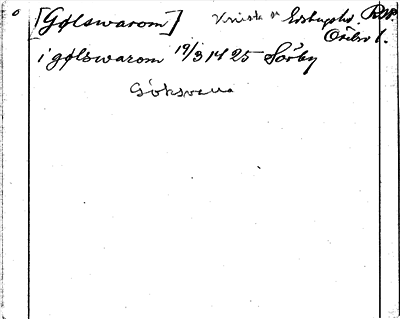 [Gølswarom] Knista sn Edsbergs hd. RAP
Örebro l.
i gølswarom 19/3 1425 Sörby
Göksvara